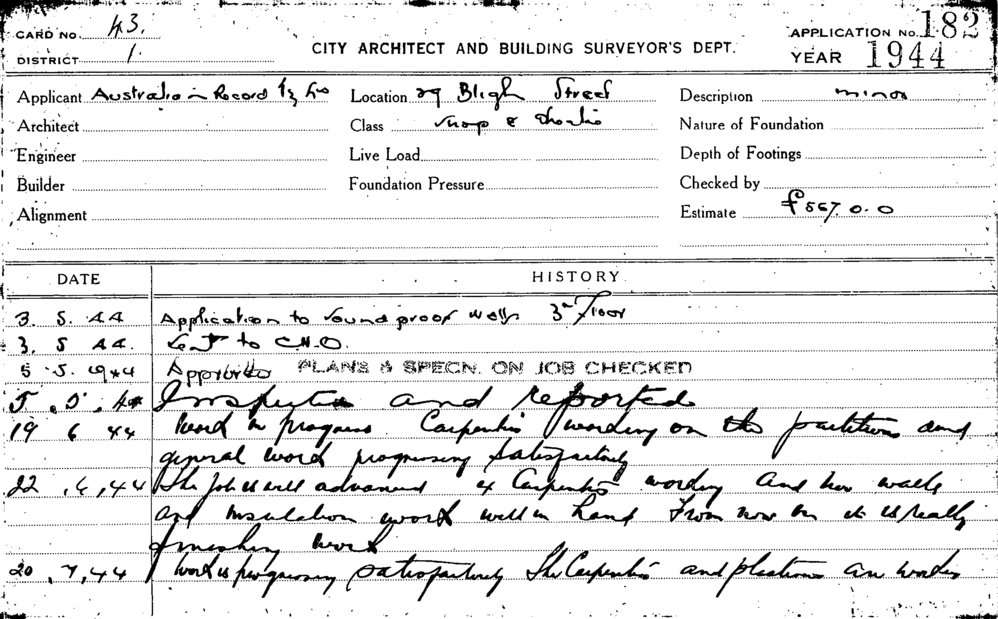 CARD NO. 43.
DISTRICT 1.
CITY ARCHITECT AND BUILDING SURVEYOR'S DEPT.
APPLICATION NO. 182
YEAR 1944
Applicant Australian Record
Location 29 Bligh Street
Description minor
Architect
Class
Nature of Foundation
Engineer
Live Load
Depth of Footings
Builder
Foundation Pressure
Checked by
Alignment
Estimate £557.0.0
DATE HISTORY
3. 5. 44 Application to soundproof walls 3rd floor
3. 5 44. Sent to C.H.O.
5. 5. 1944 Approved PLANS & SPECN. ON JOB CHECKED
5. 5. 44 Inspected and reported
19 6 44 Work in progress Carpenters working on the partitions and
general work progressing satisfactorily
22. 6. 44 The job is well advanced 4 Carpenters working and the walls
and insulation work well in hand From now on it is really
finishing work
20. 7. 44 Work is progressing satisfactorily The Carpenters and are